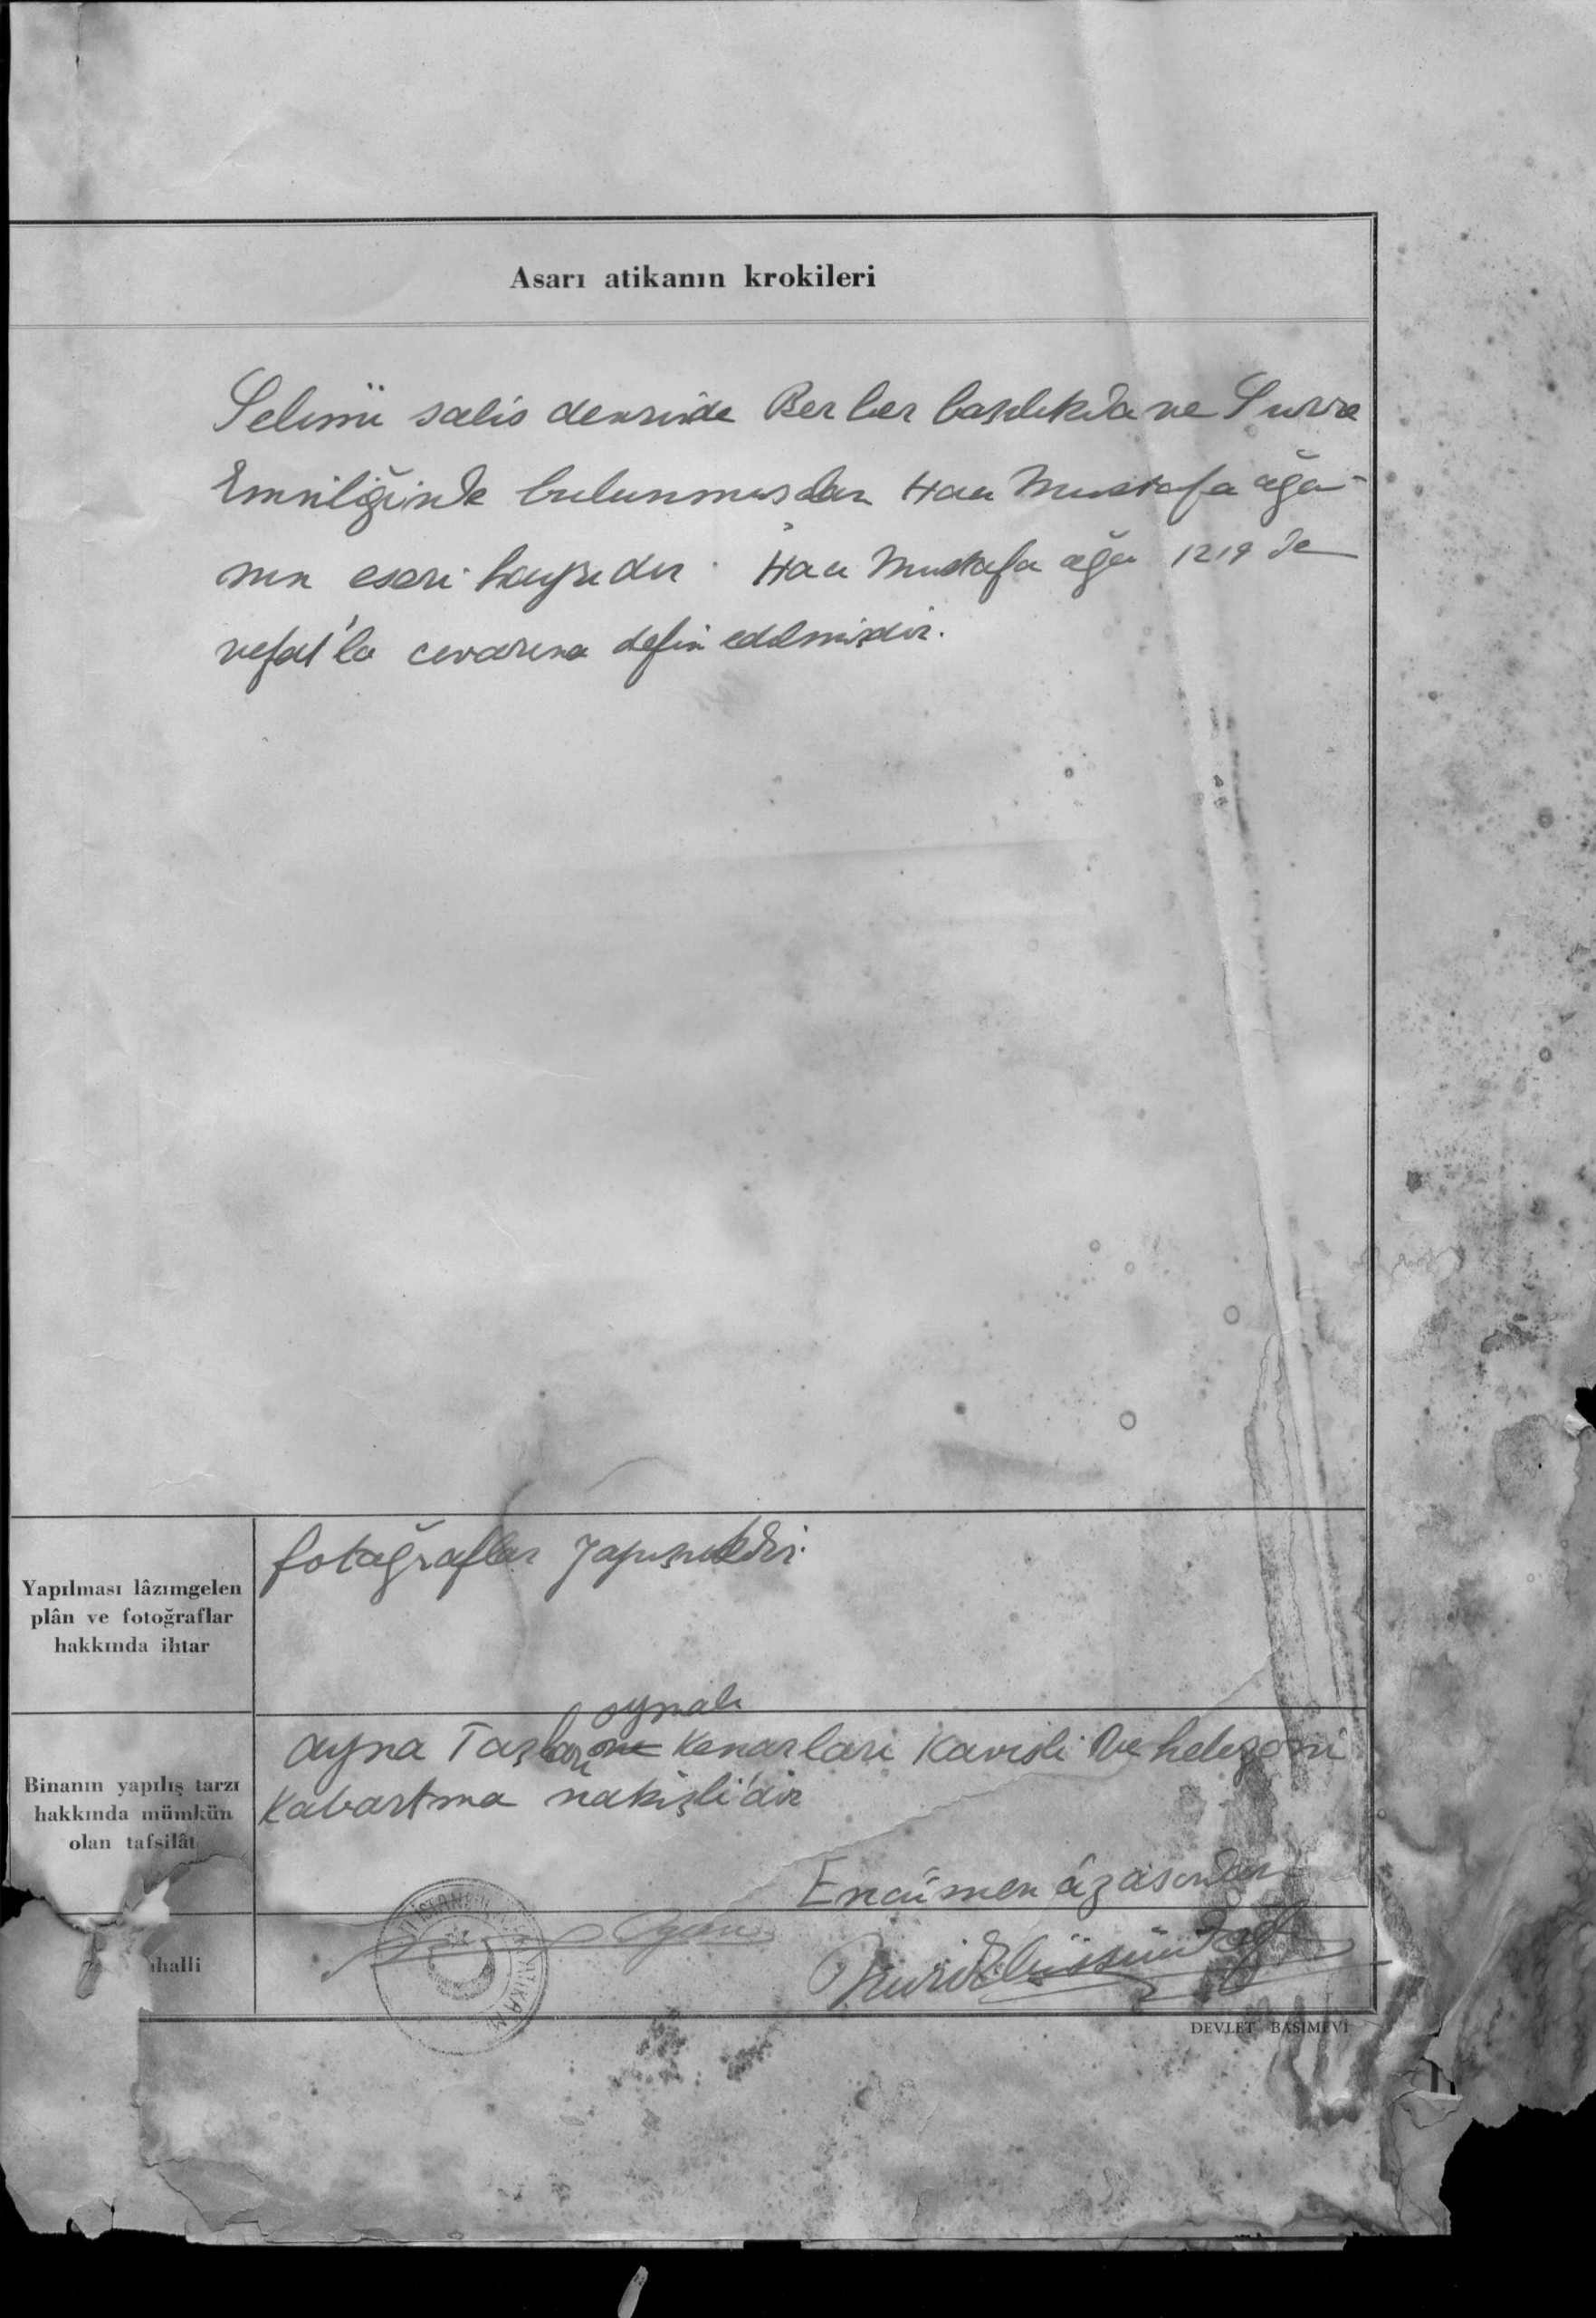 Asarı atikanın krokileri
Selimü salis devrinde Berber başılıkda ve Surre
Eminliğinde bulunmuşdan Hacı Mustafa ağa-
nın eseri hayrıdır. Hacı Mustafa ağa 1219 de
vefat'la cıvarına defin edilmişdir.
Yapılması lâzımgelen
plân ve fotoğraflar
hakkında ihtar
fotağraflar yapışıkdır.
Binanın yapılış tarzı
hakkında mümkün
olan tafsilât
oymalı
ayna Taşları Kenarlari Kavisli ve helezoni
Kabartma nakişli'dir
Encümen âzasından
halli
DEVLET BASIMEVİ